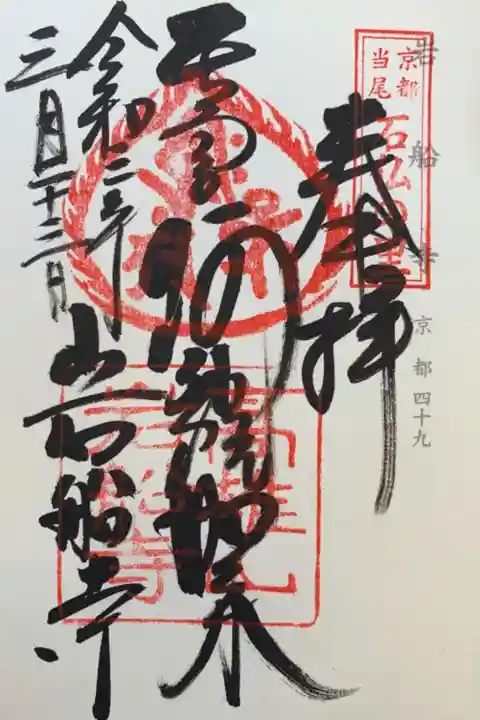 岩船寺 京都四十九
京都
当尾
石仏の里
奉拝
阿弥陀如来
高雄山
岩船寺
令和三年
三月二十三日
岩船寺